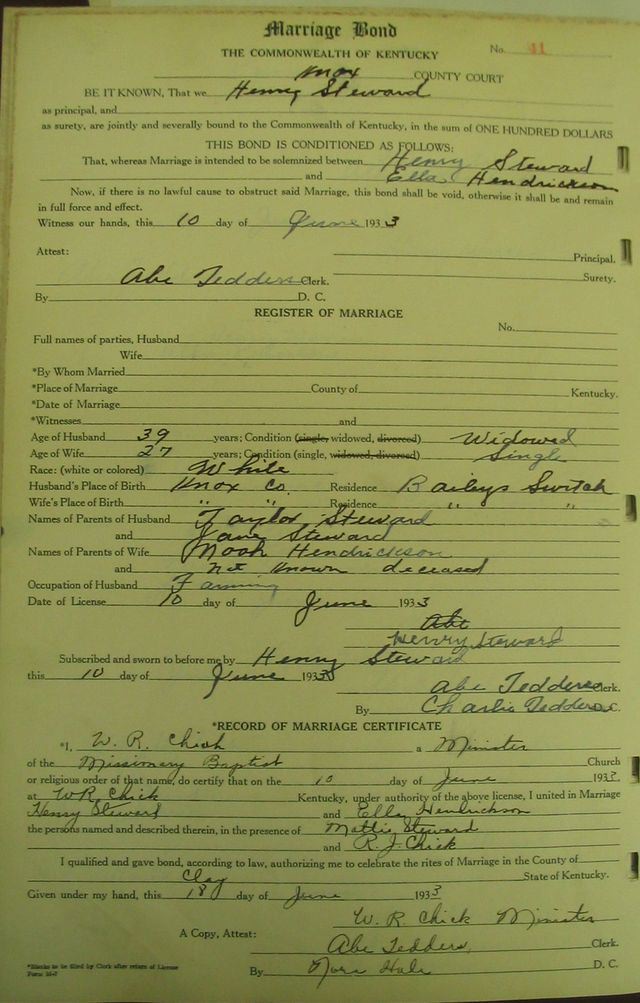 Marriage Bond
THE COMMONWEALTH OF KENTUCKY
No. 41
Knox COUNTY COURT
BE IT KNOWN, That we Henry Steward
as principal, and
as surety, are jointly and severally bound to the Commonwealth of Kentucky, in the sum of ONE HUNDRED DOLLARS
THIS BOND IS CONDITIONED AS FOLLOWS:
That, whereas Marriage is intended to be solemnized between Henry Steward
and Ella Hendrickson
Now, if there is no lawful cause to obstruct said Marriage, this bond shall be void, otherwise it shall be and remain
in full force and effect.
Witness our hands, this 10 day of June 1933
Attest:
Principal.
Abe Tedders Clerk. Surety.
By D. C.
REGISTER OF MARRIAGE
No.
Full names of parties, Husband
Wife
*By Whom Married
*Place of Marriage County of Kentucky.
*Date of Marriage
*Witnesses and
Age of Husband 39 years; Condition (single, widowed, divorced) Widowed
Age of Wife 27 years; Condition (single, widowed, divorced) Single
Race: (white or colored) White
Husband's Place of Birth Knox Co. Residence Baileys Switch
Wife's Place of Birth " " Residence " "
Names of Parents of Husband Taylor Steward
and Jane Steward
Names of Parents of Wife Noah Hendrickson
and Not Known deceased
Occupation of Husband Farming
Date of License 10 day of June 1933
Abe
Henry Steward
Subscribed and sworn to before me by Henry Steward
this 10 day of June 1933
Abe Tedders Clerk.
By Charlie Tedders D.C.
*RECORD OF MARRIAGE CERTIFICATE
*I, W. R. Chick a Minister
of the Missionary Baptist Church
or religious order of that name, do certify that on the 10 day of June 1933
at W R Chick Kentucky, under authority of the above license, I united in Marriage
Henry Steward and Ella Hendrickson
the persons named and described therein, in the presence of Mattie Steward
and R. J. Chick
I qualified and gave bond, according to law, authorizing me to celebrate the rites of Marriage in the County of
Clay State of Kentucky.
Given under my hand, this 18 day of June 1933
W. R. Chick Minister
A Copy, Attest:
Abe Tedders, Clerk.
By Nora Hale D. C.
*Blanks to be filed by Clerk after return of License